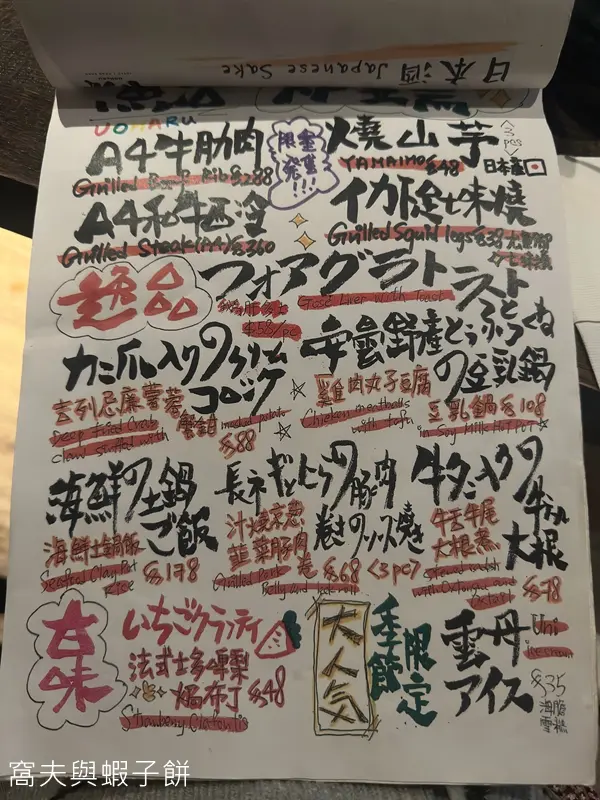 日本酒 Japanese Sake
UOHARU
A4牛肋肉
Grilled Beef Rib $288
限量発售!!!
燒山芋
<3pcs>
YAMAIMO $48
日本産
A4和牛西冷
Grilled Steak(A4)$360
イカ下足七味燒
Grilled Squid legs $38
逸品
フォアグラトースト
鵝肝多士
$58/pc
Goose Liver with Toast
カニ爪入りのクリームコロッケ
吉列忌廉薯蓉蟹鉗
Deep Fried Crab claw stuffed with mashed potato
$88
安曇野産とうふとつくねの豆乳鍋
雞肉丸子豆腐豆乳鍋 $108
Chicken meatballs with tofu in Soy Milk Hot Pot
海鮮の土鍋ご飯
海鮮土鍋飯
Seafood Clay Pot Rice $178
長ネギとにらの豚肉巻きのソース焼き
汁燒京葱韮菜豚肉卷 $68 <3pc>
Grilled Pork Belly and leek roll
牛タン入りの牛テール大根
牛舌牛尾大根煮
Stewed radish with Oxtongue and Oxtail $78
甘味
いちごクラフティ
法式士多啤梨焗布丁 $48
Strawberry Clafoutis
大人気
季節限定
雲丹アイス
Uni
Ice cream
$35
海膽雪糕
窩夫與蝦子餅